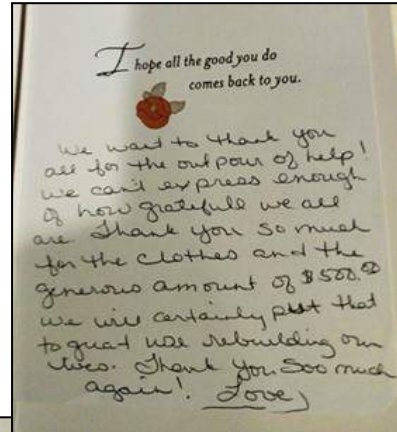 I hope all the good you do
comes back to you.
We want to thank you
all for the outpour of help!
We can't express enough
of how gratefull we all
are. Thank you so much
for the clothes and the
generous amount of $500.00
we will certainly put that
to great use rebuilding our
lives. Thank you Soo much
again! Love,